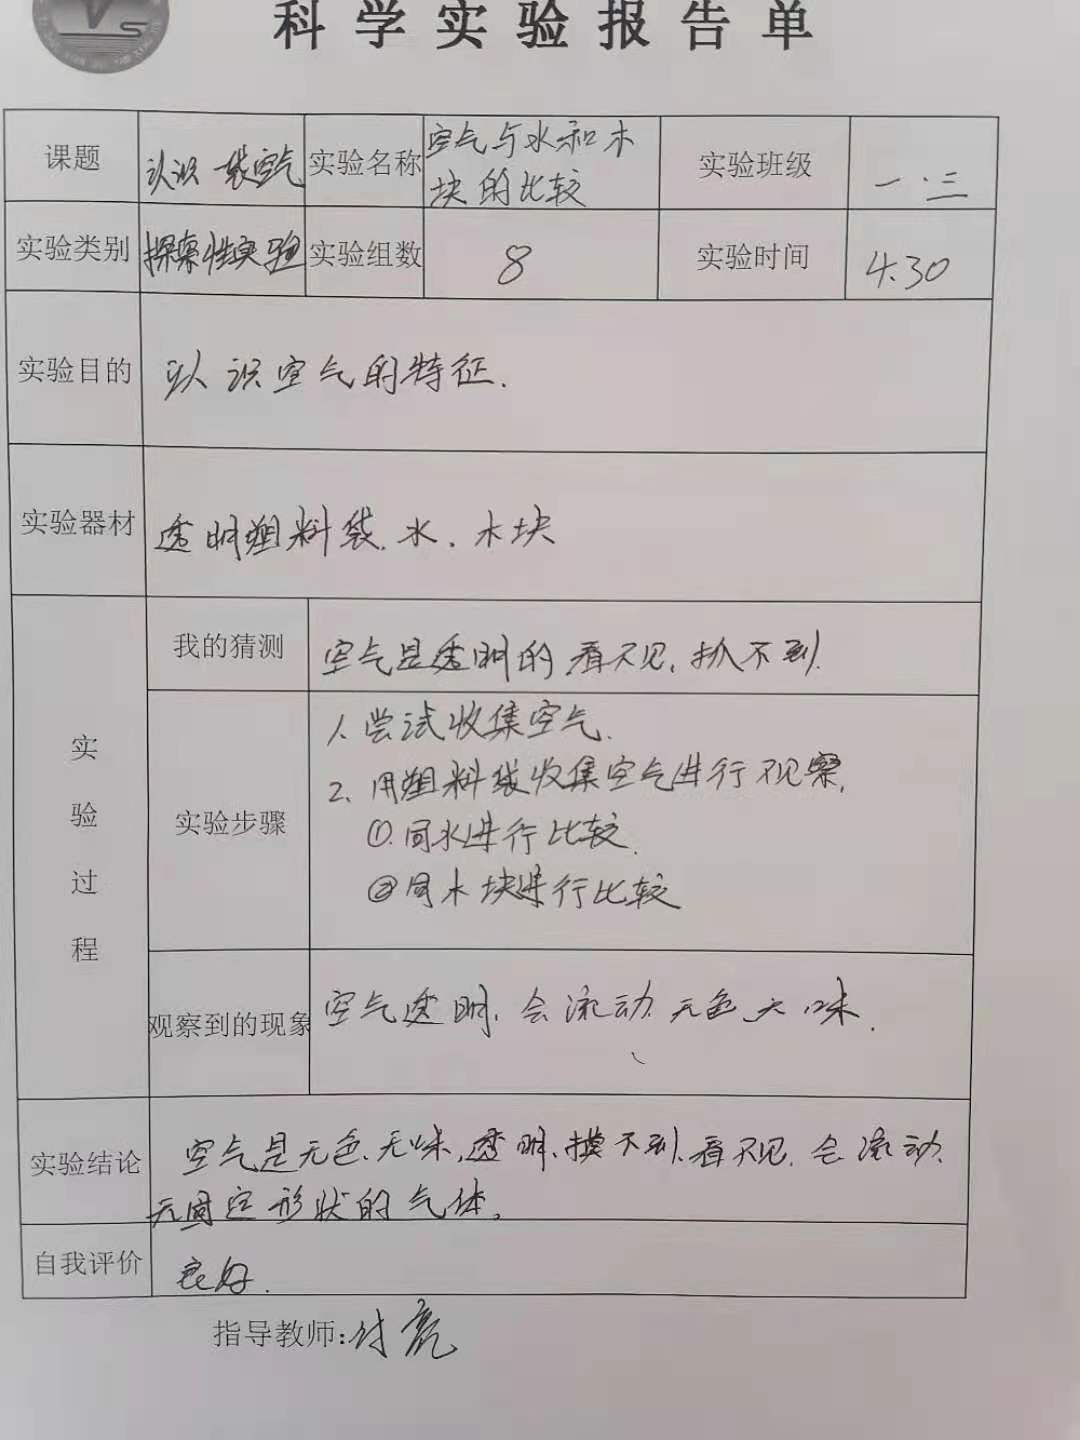 科学实验报告单
课题 认识一袋空气 实验名称 空气与水和木
块的比较 实验班级 一.三
实验类别 探索性实验 实验组数 8 实验时间 4.30
实验目的 认识空气的特征.
实验器材 透明塑料袋.水.木块
实验过程
我的猜测 空气是透明的 看不见.抓不到.
实验步骤
1.尝试收集空气.
2.用塑料袋收集空气进行观察,
①.同水进行比较.
②同木块进行比较
观察到的现象 空气透明.会流动.无色.无味.
实验结论 空气是无色.无味.透明.摸不到.看不见.会流动.
无固定形状的气体.
自我评价 良好.
指导教师:付亮